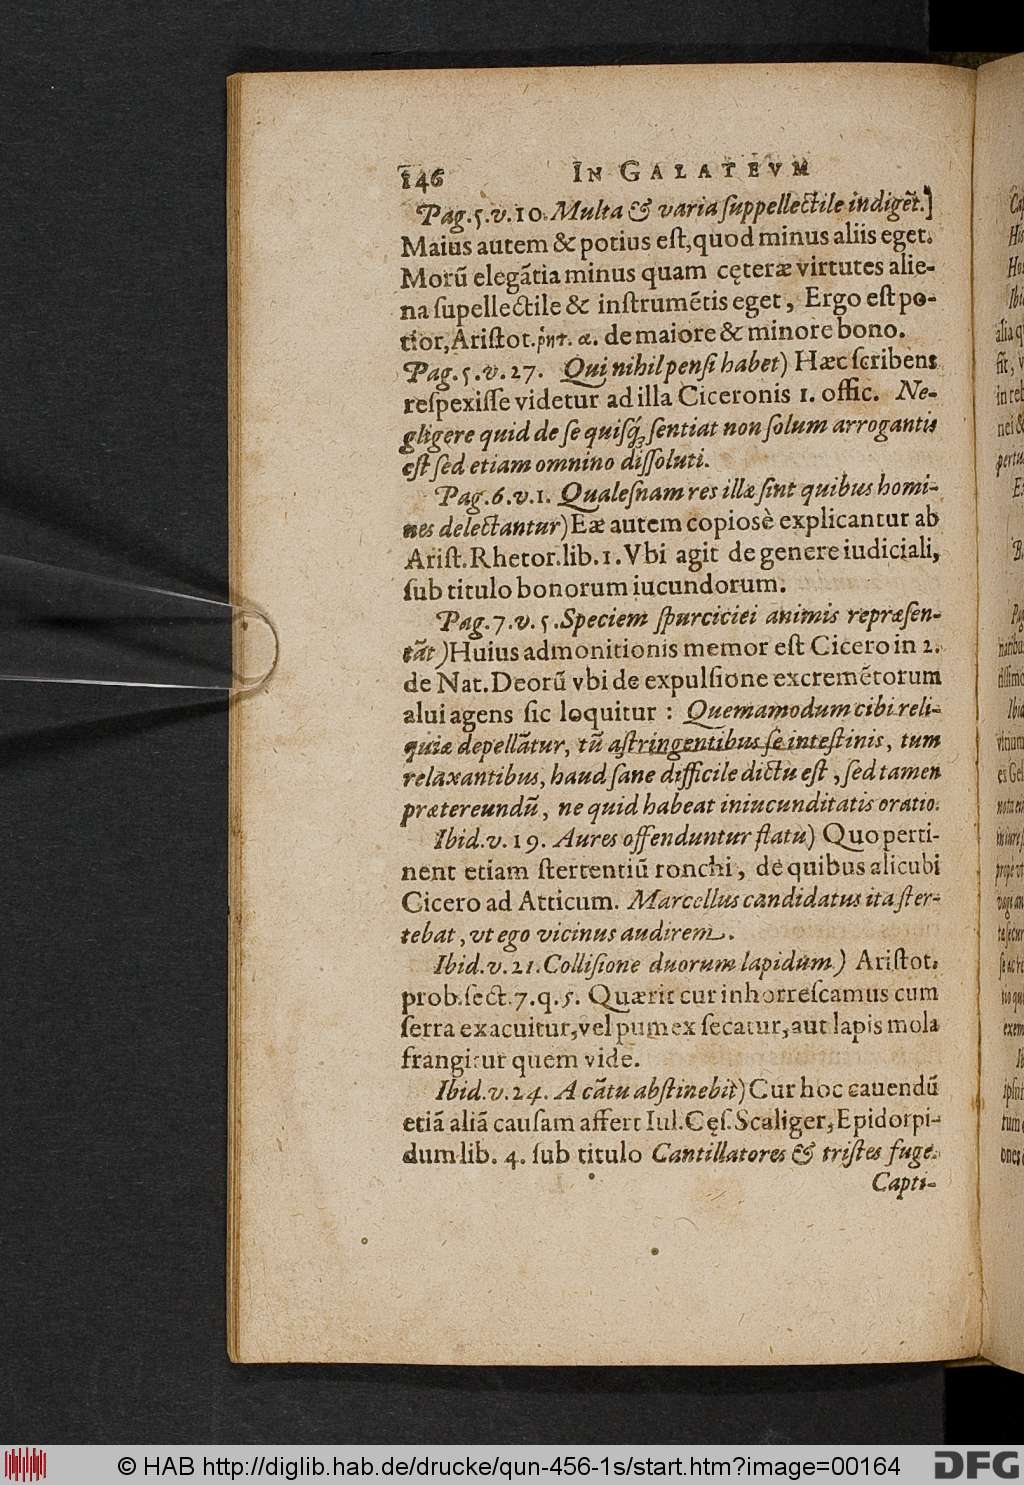 146 IN GALATEVM
Pag.5.v.10. Multa & varia ſuppellectile indigẽt.]
Maius autem & potius eſt, quod minus aliis eget.
Morũ elegãtia minus quam cęteræ virtutes alie-
na ſupellectile & inſtrumẽtis eget, Ergo eſt po-
tior, Ariſtot. ῥητ. α. de maiore & minore bono.
Pag.5.v.27. Qui nihil penſi habet) Hæc ſcribens
reſpexiſſe videtur ad illa Ciceronis 1. offic. Ne-
gligere quid de ſe quiſq́; ſentiat non ſolum arrogantis
eſt ſed etiam omnino diſſoluti.
Pag.6.v.1. Qualeſnam res illæ ſint quibus homi-
nes delectantur) Eæ autem copiosè explicantur ab
Ariſt. Rhetor. lib. 1. Vbi agit de genere iudiciali,
ſub titulo bonorum iucundorum.
Pag.7.v.5. Speciem ſpurciciei animis repræſen-
tãt) Huius admonitionis memor eſt Cicero in 2.
de Nat. Deorũ vbi de expulſione excremẽtorum
alui agens ſic loquitur : Quemamodum cibi reli-
quiæ depellãtur, tũ aſtringentibus ſe inteſtinis, tum
relaxantibus, haud ſane difficile dictu eſt, ſed tamen
prætereundũ, ne quid habeat iniucunditatis oratio.
Ibid.v.19. Aures offenduntur flatu) Quo perti-
nent etiam ſtertentiũ ronchi, de quibus alicubi
Cicero ad Atticum. Marcellus candidatus ita ſter-
tebat, vt ego vicinus audirem.
Ibid.v.21. Colliſione duorum lapidum) Ariſtot.
prob. ſect. 7. q. 5. Quærit cur inhorreſcamus cum
ſerra exacuitur, vel pumex ſecatur, aut lapis mola
frangitur quem vide.
Ibid.v.24. A cãtu abſtinebit) Cur hoc cauendũ
etiã aliã cauſam affert Iul. Cęſ. Scaliger, Epidorpi-
dum lib. 4. ſub titulo Cantillatores & triſtes fuge.
Capti-
© HAB http://diglib.hab.de/drucke/qun-456-1s/start.htm?image=00164
DFG